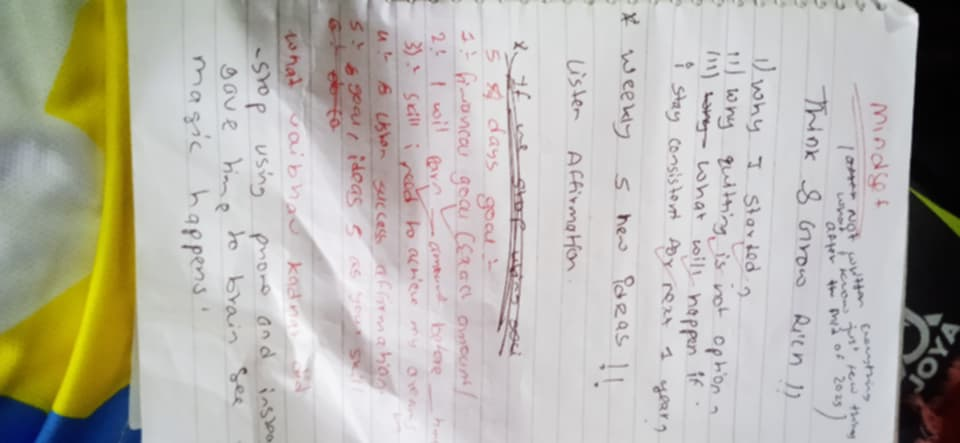 Mindset
(Not written everything
what know just few thing
after the mid of 2023)
Think & Grow Rich !!
i) Why I started ?
ii) Why quitting is not option ?
iii) what will happen if
i stay consistent for next 1 year ?
* Weekly 5 new ideas !!
Listen Affirmation.
* If we stop
5 days goal :-
1:- financial goal (Exact amount)
2:- I will Earn — amount before —
3):- Skill i need to achive my dreams
4:- listen success affirmation
5:- goal, ideas 5 as your skill
6:-
What vaibhav kadnar did
- Stop using phone and insta
gave time to brain see
magic happens !
JOYA